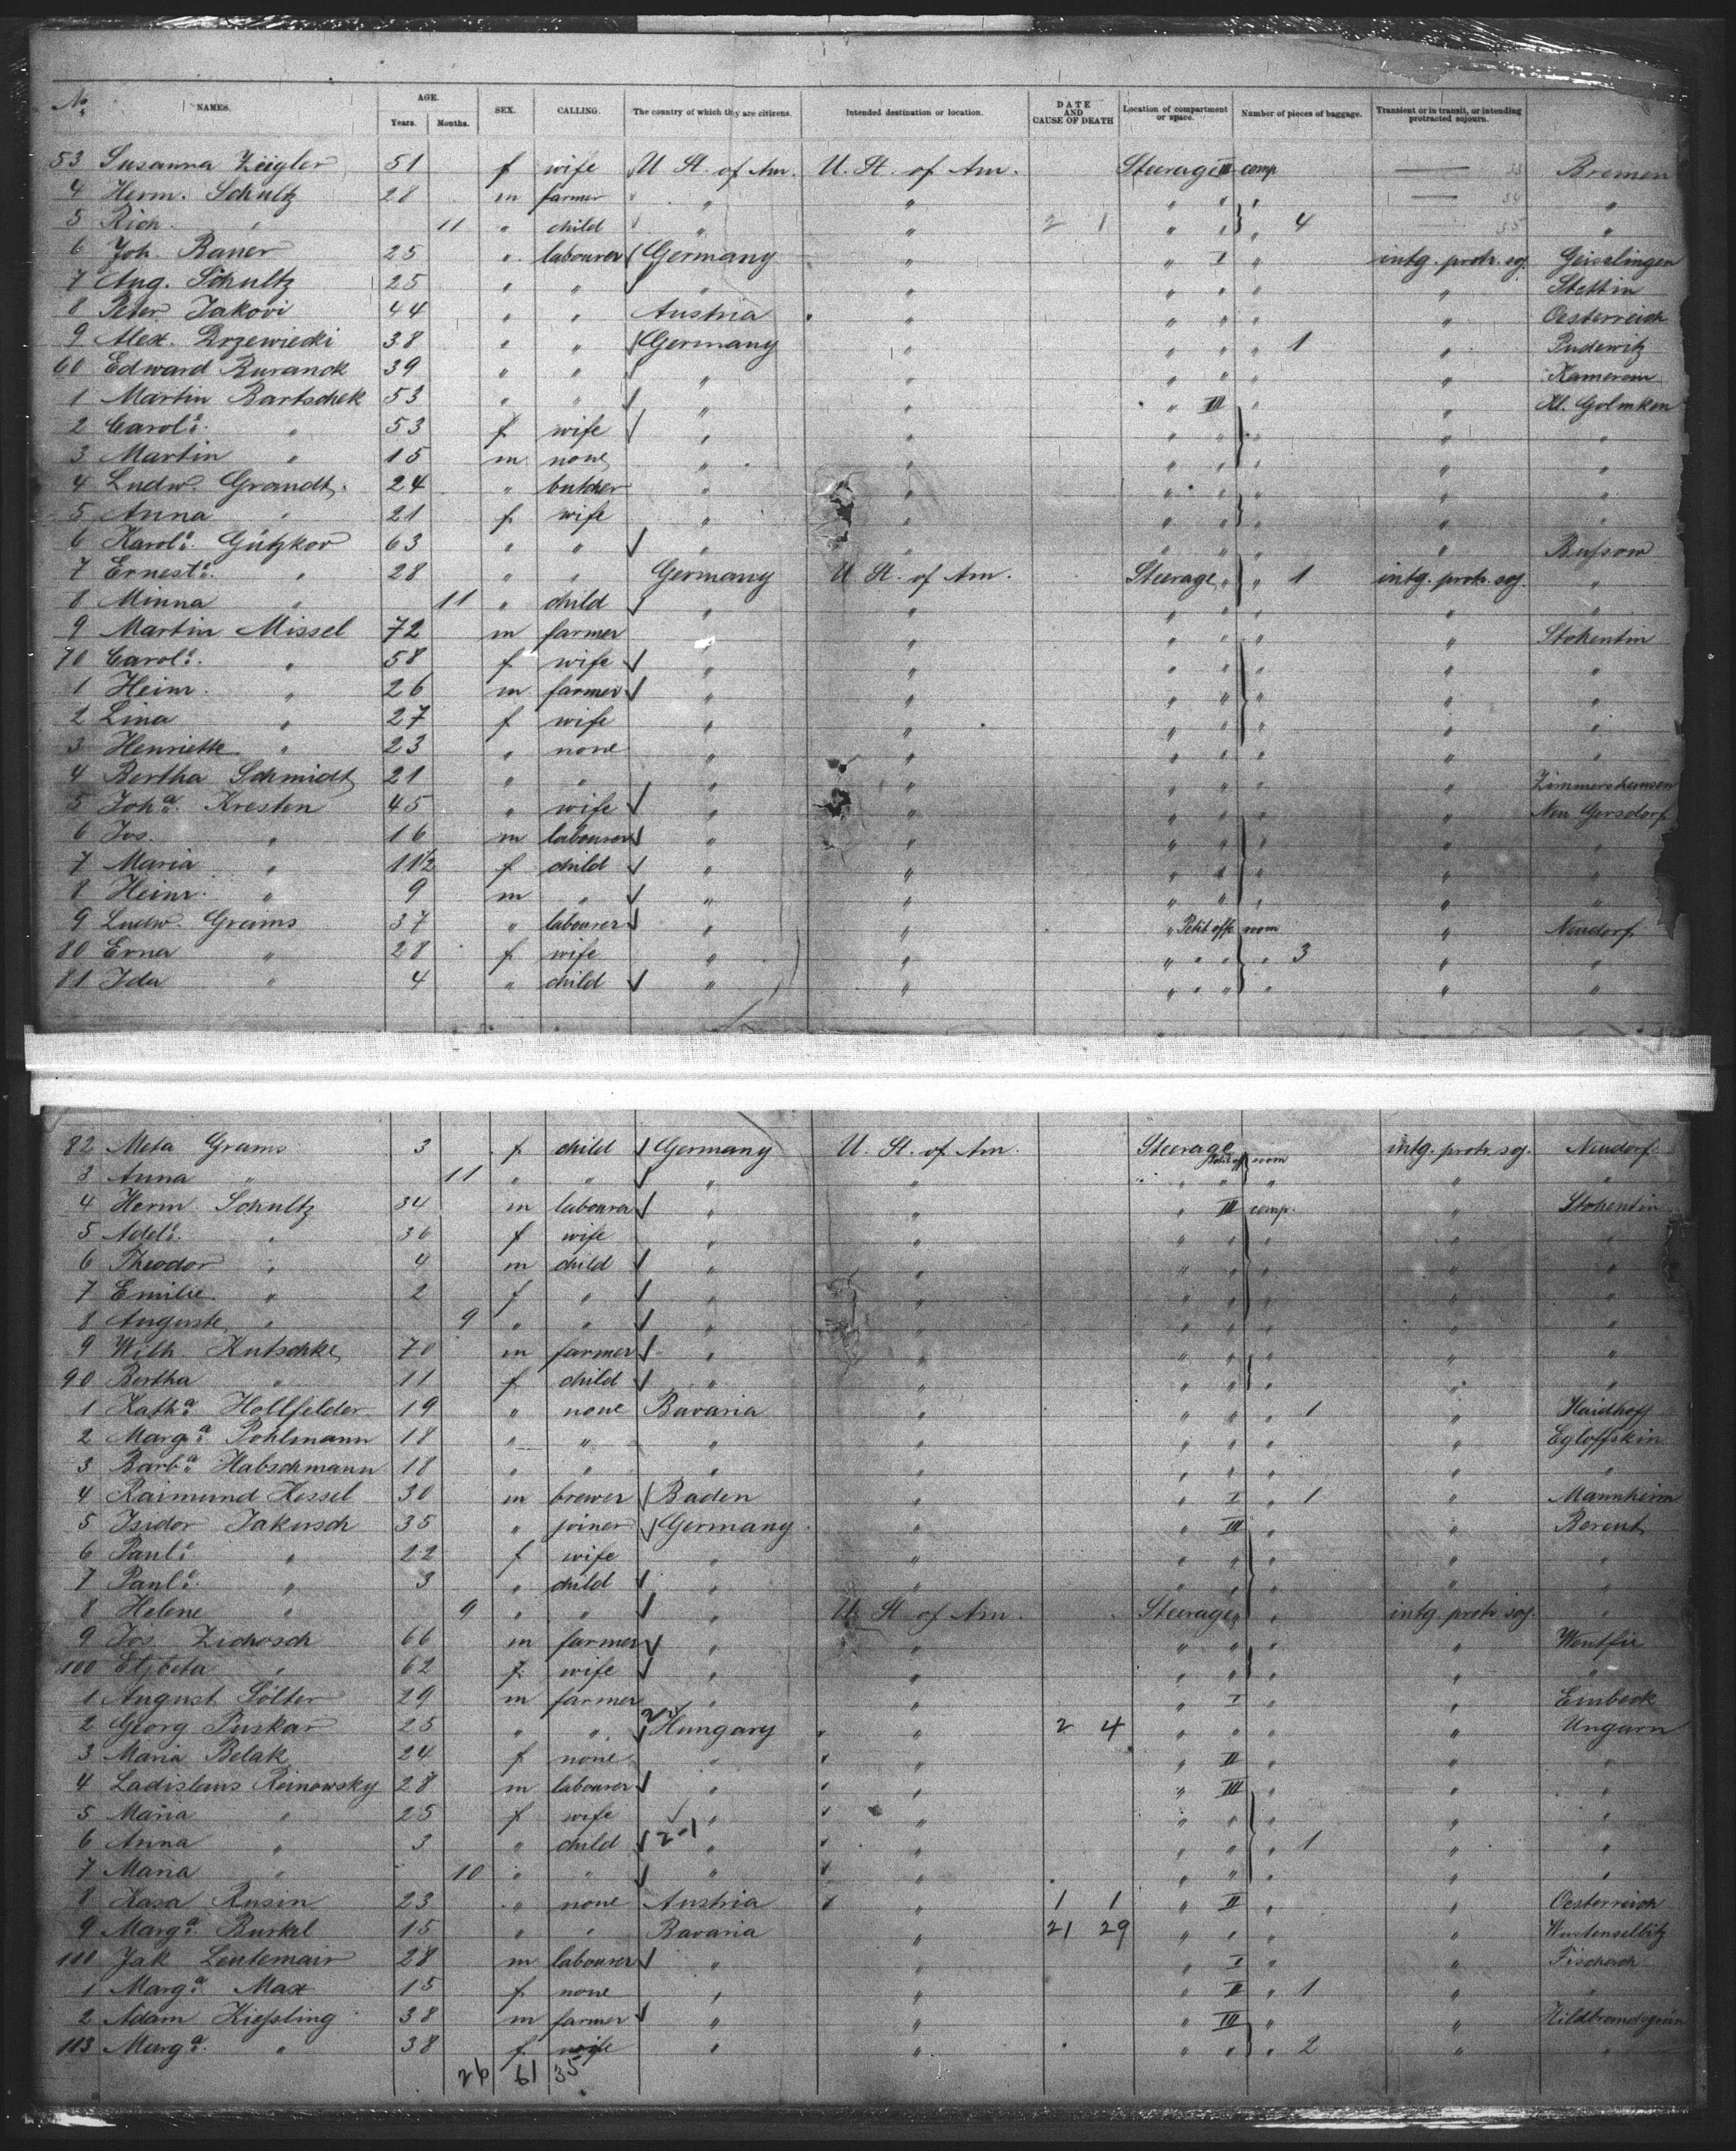 No. NAMES. AGE. Years. Months. SEX. CALLING. The country of which they are citizens. Intended destination or location. DATE AND CAUSE OF DEATH Location of compartment or space. Number of pieces of baggage. Transient or in transit, or intending protracted sojourn.
53 Susanna Zeigler 51 f wife U St. of Am. U. St. of Am. Steerage II comp — 33 Bremen
4 Herm. Schultz 28 m farmer " " " " " — 34 "
5 Rich. " 11 " child " " 2 1 " " " 4 — 35 "
6 Joh. Bauer 25 " labourer Germany " " I " intg. protr. soj. Geisslingen
7 Aug. Schultz 25 " " " " " " " " Stettin
8 Peter Jakovi 44 " " Austria " " " " " Oesterreich
9 Alex. Drzewiecki 38 " " Germany " " " " 1 " Pudewitz
60 Edward Buranck 39 " " " " " " " "
1 Martin Bartschek 53 " " " " " III " " Kl. Golmken
2 Carole. " 53 f wife " " " " " " "
3 Martin " 15 m none " " " " " " "
4 Ludw. Grandt 24 " butcher " " " " " "
5 Anna " 21 f wife " " " " " " "
6 Karole. Gützkov 63 " " " " " " " " Bussow
7 Erneste. " 28 " " Germany U St. of Am. Steerage " " 1 intg. protr. soj. "
8 Minna " 11 " child " " " " " " "
9 Martin Missel 72 m farmer " " " " " " Stohentin
70 Carole. " 58 f wife " " " " " " "
1 Heinr. " 26 m farmer " " " " " " "
2 Lina " 27 f wife " " " " " " "
3 Henriette " 23 " none " " " " " " "
4 Bertha Schmidt 21 " " " " " " " " Zimmershausen
5 Joha. Kresten 45 " wife " " " " " " Neu Gersdorf
6 Jos. " 16 m labourer " " " " " " "
7 Maria " 11½ f child " " " " " " "
8 Heinr. " 9 m " " " " " " " "
9 Ludw. Grams 37 " labourer " " " Petit offc room " Neudorf
80 Erna " 28 f wife " " " " " " 3 " "
81 Ida " 4 " child " " " " " " " "
82 Meta Grams 3 f child Germany U. St. of Am. Steerage Petit off room intg. protr. soj. Neudorf
3 Anna " 11 " " " " " " " " "
4 Herm. Schultz 34 m labourer " " " III comp. " Stohentin
5 Adele. " 36 f wife " " " " " " "
6 Theodor " 4 m child " " " " " " "
7 Emilie " 2 f " " " " " " " "
8 Auguste " 9 " " " " " " " " "
9 Wilh. Kutschke 70 m farmer " " " " " " "
90 Bertha " 11 f child " " " " " " "
1 Katha. Hollfelder 19 " none Bavaria " " " " 1 " Haidhoff
2 Marga. Pohlmann 18 " " " " " " " " Egloffstein
3 Barba. Habschmann 18 " " " " " " " " "
4 Raimund Hessel 30 m brewer Baden " " I " 1 " Mannheim
5 Isidor Jakusch 35 " joiner Germany " " III " " Berent
6 Paule. " 22 f wife " " " " " " "
7 Paule. " 3 " child " " " " " " "
8 Helene " 9 " " " U. St. of Am. Steerage " " intg. protr. soj. "
9 Jos. Zichosch 66 m farmer " " " " " " Wentfie
100 Eljbeta " 62 f wife " " " " " " "
1 August Sölter 29 m farmer " " " I " " Einbeck
2 Georg Puskar 25 " " Hungary " 2 4 " " " " Ungarn
3 Maria Belak 24 f none " " " II " " "
4 Ladislaus Reinowsky 28 m labourer " " " III " " "
5 Maria " 25 f wife " " " " " " "
6 Anna " 3 " child 2-1 " " " " " 1 " "
7 Maria " 10 " " " " " " " " "
8 Kasa Rusin 23 " none Austria " 1 1 " II " " Oesterreich
9 Marga. Burkel 15 " " Bavaria " 21 29 " " " " Wustenselbitz
110 Jak Leutemair 28 m labourer " " " I " " Fischach
1 Marga. Max 15 f none " " " II " 1 " "
2 Adam Kiessling 38 m farmer " " " III " " Hildbrandsgrün
113 Marga. " 38 f wife " " " " " 2 " "
26 61 35